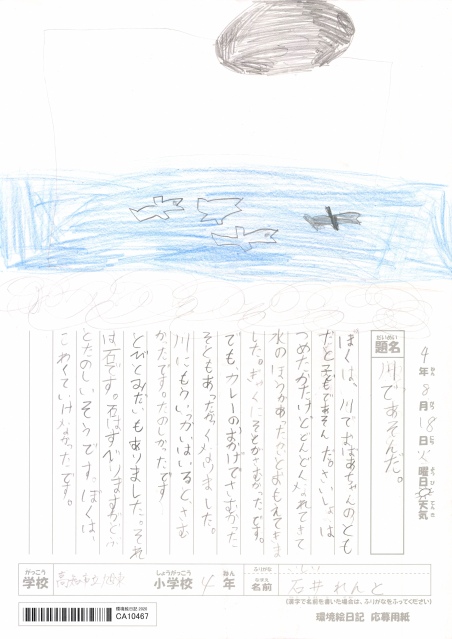 4年8月18日火曜日 天気
だいめい
題名
川であそんだ。
ぼくは、川でおばあちゃんのとも
だちと子どもであそんだ。さいしょは
つめたかたけどどんどんなれてきて
水のほうがあったかいとおもえてきま
した。ぎゃくにそとがさむかったです。
でも、カレーのおかげでさむかった
そともあったかくなりました。
川にもういっかいはいるとさむ
かったです。たのしかったです
とびこみだいもありました。それ
は石です。石はすべりますが
とたのしいそうです。ぼくは、
こわくていけなかったです。
がっこう
学校
小学校
しょうがっこう
4年
ねん
ふりがな
なまえ
名前
石井れんと
(漢字で名前を書いた場合は、ふりがなをふってください)
環境絵日記 2020
CA10467
環境絵日記 応募用紙